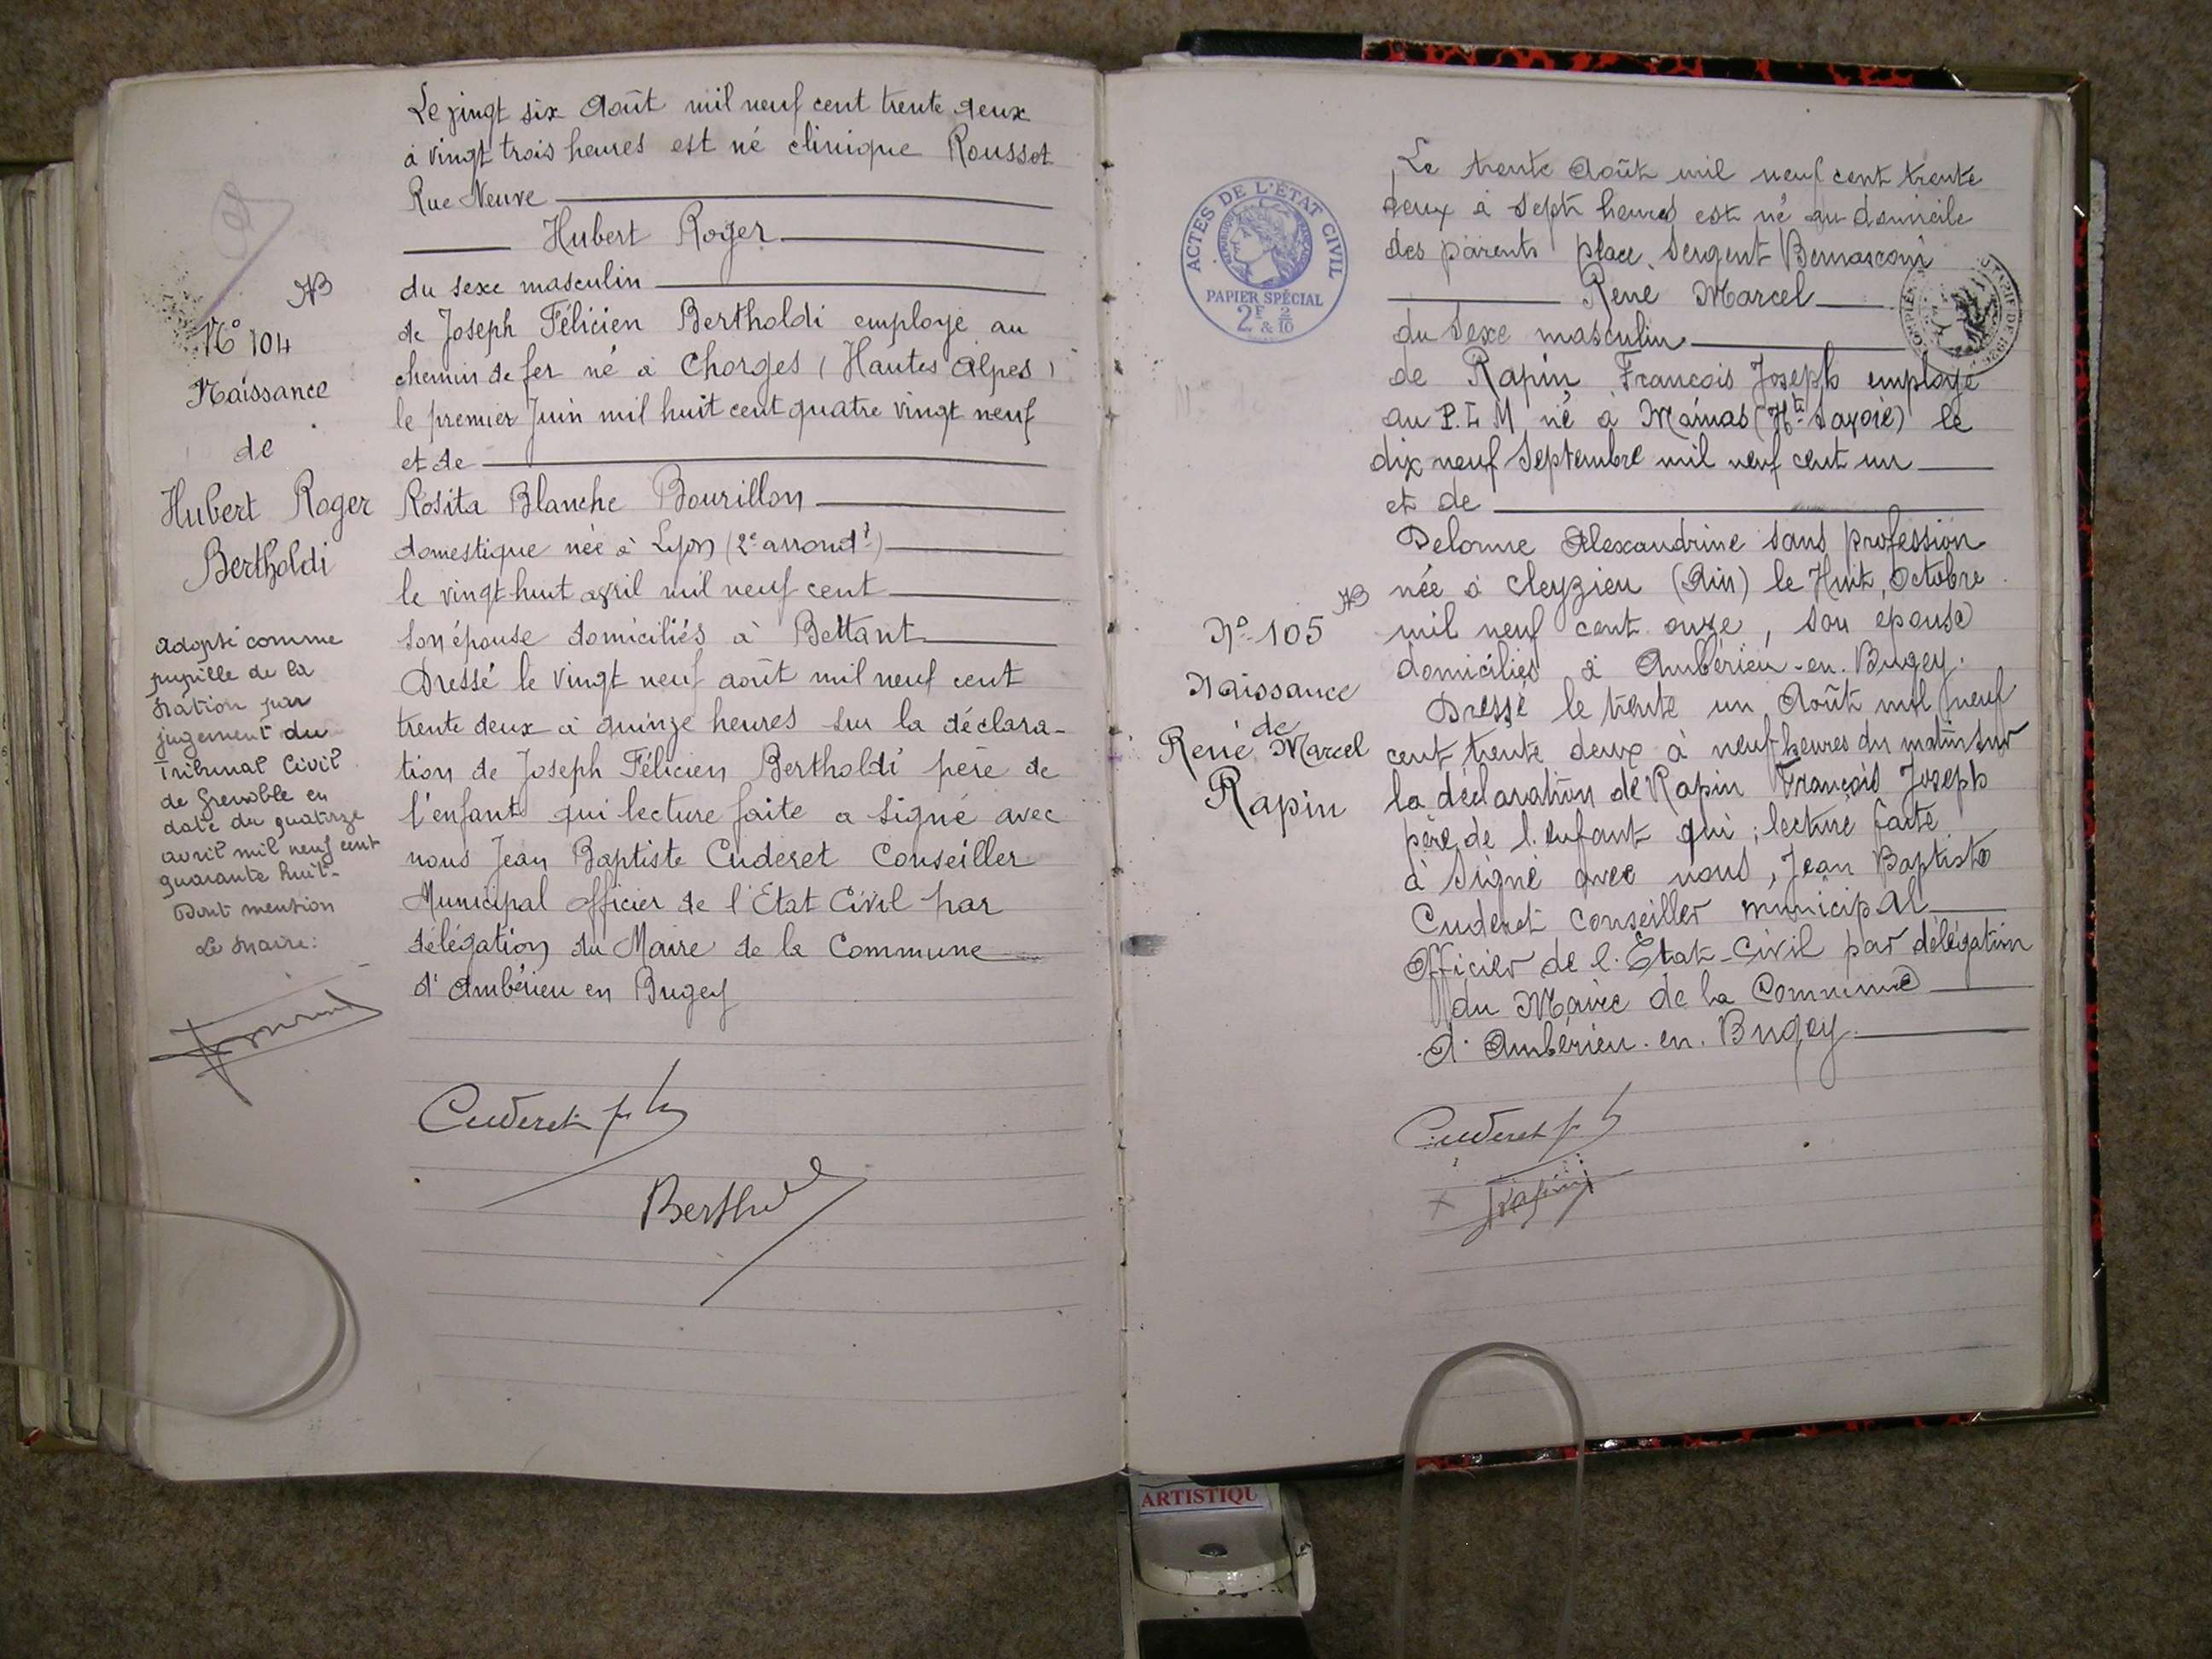 Le vingt six Août mil neuf cent trente deux
à vingt trois heures est né clinique Roussot
Rue Neuve
Hubert Roger
du sexe masculin
de Joseph Félicien Bertholdi employé au
chemin de fer né à Chorges (Hautes Alpes)
le premier Juin mil huit cent quatre vingt neuf
et de
Rosita Blanche Bourillon
domestique née à Lyon (2e arrondt)
le vingt huit avril mil neuf cent
son épouse domiciliés à Bettant
Dressé le vingt neuf août mil neuf cent
trente deux à quinze heures sur la déclara-
tion de Joseph Félicien Bertholdi père de
l'enfant qui lecture faite a signé avec
nous Jean Baptiste Cuderet Conseiller
Municipal officier de l'Etat Civil par
délégation du Maire de la Commune
d'Ambérieu en Bugey
Cuderet
AB
N° 104
Naissance
de
Hubert Roger
Bertholdi
adopté comme
pupille de la
nation par
jugement du
Tribunal Civil
de Grenoble en
date du quatorze
avril mil neuf cent
quarante huit-
Dont mention
Le Maire:
ACTES DE L'ÉTAT CIVIL
PAPIER SPÉCIAL
2F & 2/10
Le trente Août mil neuf cent trente
deux à sept heures est né au domicile
des parents place Sergent Bernasconi
René Marcel
du sexe masculin
de Rapin François Joseph employé
au P.L.M né à (Hte Savoie) le
dix neuf Septembre mil neuf cent un
et de
Delorme Alexandrine sans profession
née à Cleyzieu (Ain) le Huit Octobre
mil neuf cent onze, son epouse
domiciliés à Ambérieu-en-Bugey.
Dressé le trente un Août mil neuf
cent trente deux à neuf heures du matin sur
la déclaration de Rapin François Joseph
père de l'enfant qui, lecture faite
à signé avec nous, Jean Baptiste
Cuderet Conseiller municipal
Officier de l'Etat-Civil par délégation
du Maire de la Commune
d'Ambérieu-en-Bugey
Cuderet
Rapin
AB
N° 105
Naissance
de
René Marcel
Rapin
ARTISTIQU